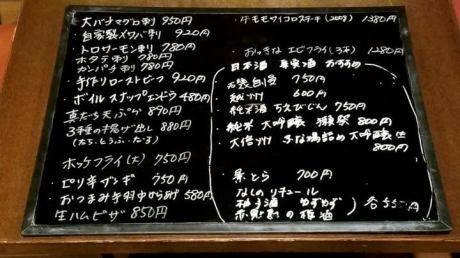 大バチマグロ刺 950円
自家製〆サバ刺 920円
トロサーモン刺 780円
ホタテ刺 780円
カンパチ刺 780円
手作りローストビーフ 920円
ボイルスナップエンドウ 480円
真だち天ぷら 890円
3種の揚げ出し 880円
(たち・とうふ・なす)
ホッケフライ(大) 750円
ピリ辛ザンギ 750円
おつまみ手羽中からあげ 580円
生ハムピザ 850円
サイコロステーキ(200g) 1380円
おっきなエビフライ(3本) 1280円
日本酒 果実酒 おすすめ
750円
越州 600円
純米酒 ちえびじん 750円
純米 大吟醸 獺祭 800円
大信州 槽場詰め 大吟醸
800円
700円
なしのリキュール
柚子酒 ゆずゆず
梅酒
各550円